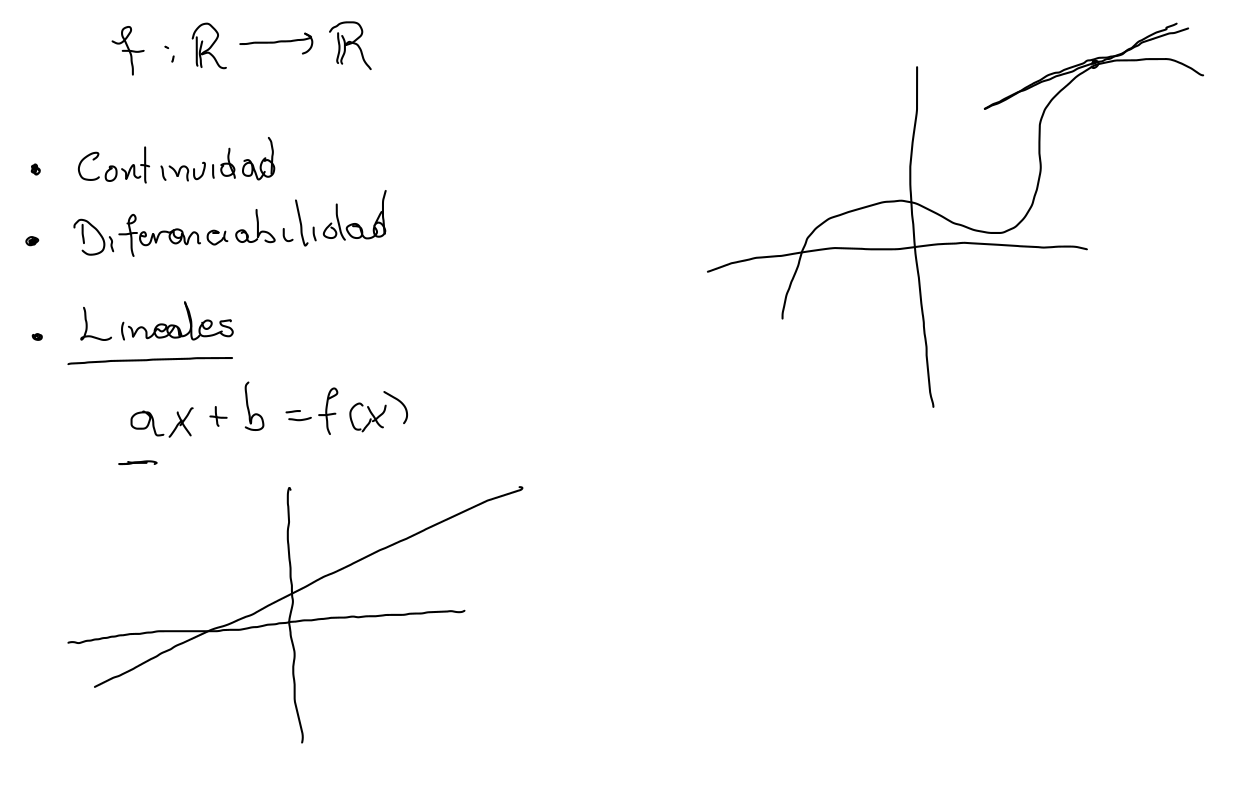 f : ℝ → ℝ
• Continuidad
• Diferenciabilidad
• Lineales
ax + b = f(x)